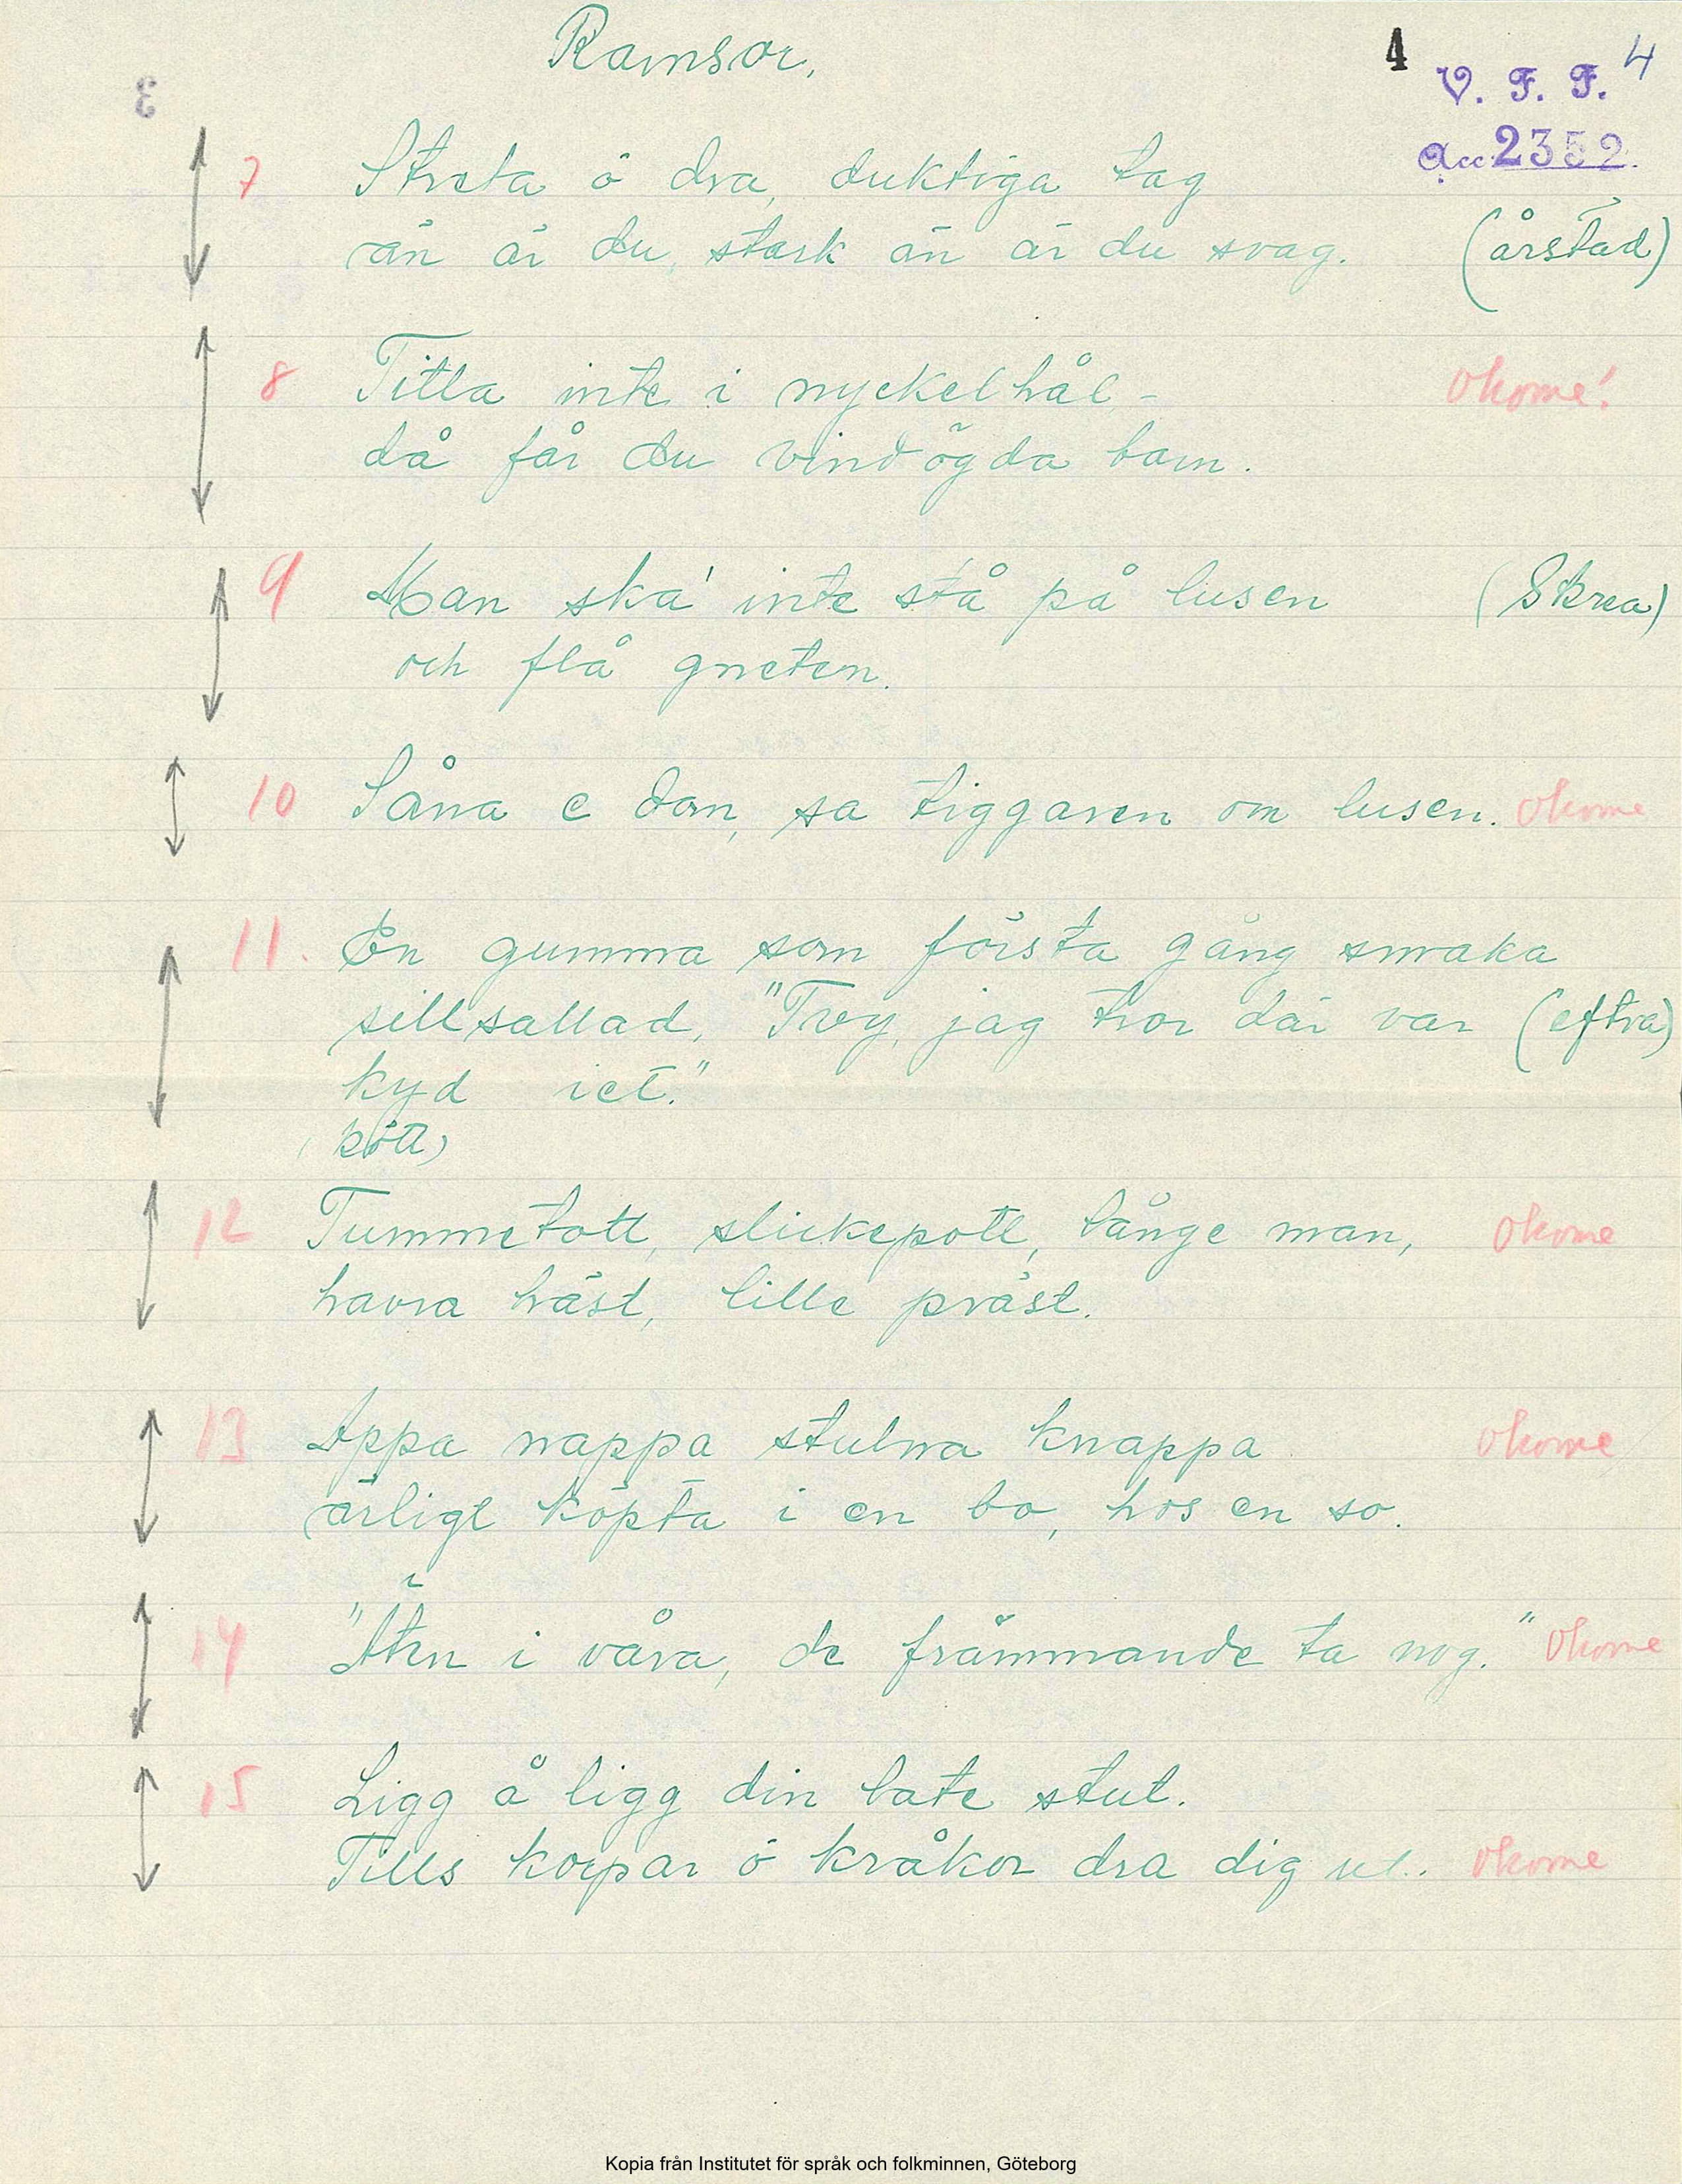 Ramsor,
4
4
V. F. F.
Acc 2352.
3
7 Streta ö dra, duktiga tag
än är du, stark än är du svag. (årstad)
8 Titta inte i nyckelhål - Okome!
då får du vindögda barn.
9 Man ska' inte stå på lusen (Skrea)
och flå gneten.
10 Såna e dom, sa tiggaren om lusen. Okome
11. En gumma som första gång smaka
sillsallad, "Tvy, jag tror där var (eftra)
kyd iet."
(kött)
12 Tummetott, slickepott, långe man, Okome
havra häst, lille präst.
13 Appa nappa stulna knappa Okome
ärligt köpta i en bo, hos en so.
14 "Äten i våra, de främmande ta nog." Okome
15 Ligg å ligg din late stut.
Tills korpar ö kråkor dra dig ut. Okome
Kopia från Institutet för språk och folkminnen, Göteborg